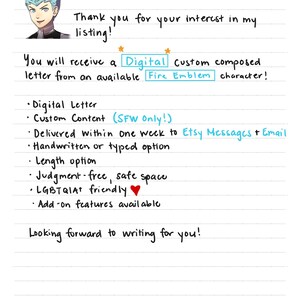 Thank you for your interest in my
listing!
You will receive a Digital Custom composed
letter from an available Fire Emblem character!
• Digital Letter
• Custom Content (SFW only!)
• Delivered within one week to Etsy Messages + Email
• Handwritten or typed option
• Length option
• Judgment-free, safe space
• LGBTQIA+ friendly
• Add-on features available
Looking forward to writing for you!